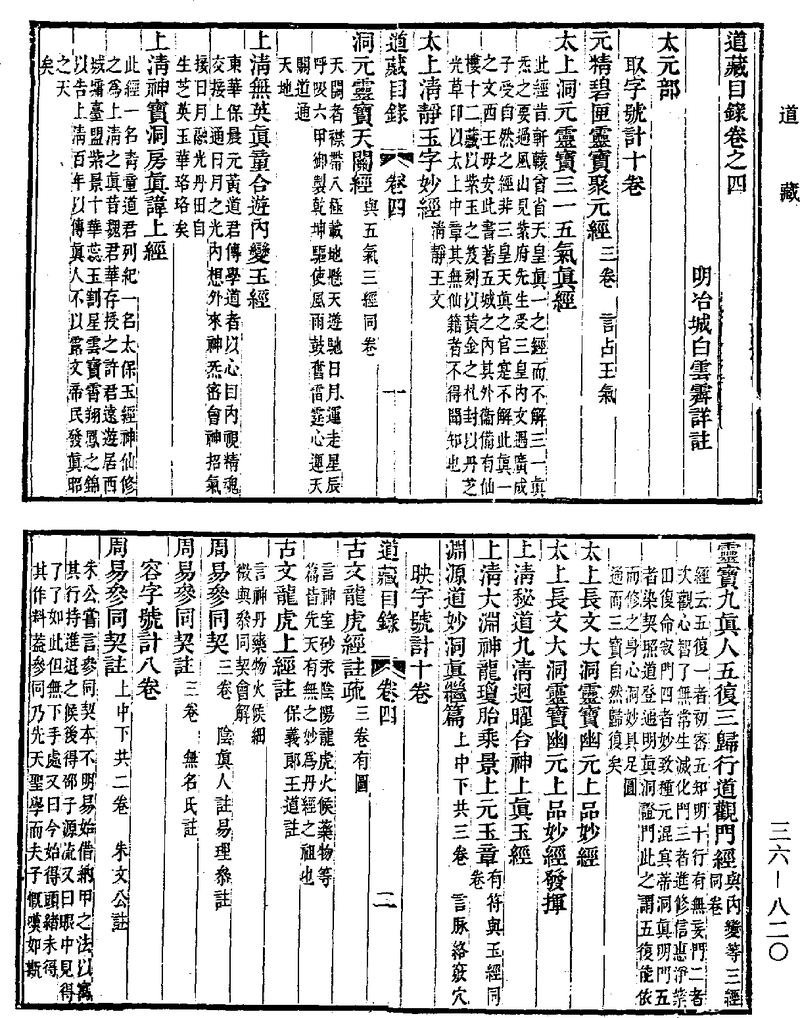 道藏
道藏目錄卷之四
明冶城白雲霽詳註
太元部
取字號計十卷
元精碧匣靈寶聚元經三卷 言占王氣
太上洞元靈寶三一五氣眞經
此經昔軒轅曾省天皇眞一之經而不解三一眞
炁之要過風山見紫府先生受三皇內文過廣成
子受自然之經非三皇天眞之官寔不解此眞一
之文西王母安此書著五城之內其外衞備有仙
樓十二藏以紫玉之笈刻以黃金之札封以丹芝
光草印以太上中章其無仙籍者不得聞知也
太上淸靜玉字妙經淸靜王文
道藏目錄 卷四 一
洞元靈寶天關經與五氣三經同卷
天關者襟帶八極載地懸天遊馳日月運走星辰
呼吸六甲御製乾坤驅使風雨鼓舊雷霆心運天
關道通
天地
上淸無英眞童合遊內變玉經
東華保晨元黃道君傳學道者以心目內視精魂
交接上通日月之光內想外來神炁密會神招氣
接日月融光丹田自
生芝英玉華珞珞矣
上淸神寶洞房眞諱上經
此經一名靑童道君列紀一名太保玉經神仙修
之為上淸之眞昔魏君華存授之許君遠遊居西
城墉臺盟紫景十華蕊玉割星雲寶霄翔鳳之錦
以告上淸百年以傳眞人不以露文帛民發眞昭
之天
矣
靈寶九眞人五復三歸行道觀門經與內變等三經同卷
經云五復一者初密五知明十行有無妄門二者
次觀心智了無常生滅化門三者進修信惠淨業
田復命寂門四者妙致種元混眞蒂洞眞明門五
者染契照道登通明眞洞證門此之謂五復能依
而修之身心洞妙具足圓
通而三寶自然歸復矣
太上長文大洞靈寶幽元上品妙經
太上長文大洞靈寶幽元上品妙經發揮
上淸秘道九淸迴曜合神上眞玉經
上淸大淵神龍瓊胎乘景上元玉章有符與玉經同卷
淵源道妙洞眞繼篇上中下共三卷 言脉絡竅穴
映字號計十卷
道藏目錄 卷四 二
古文龍虎經註疏三卷有圖
言神室砂汞陰陽龍虎火候藥物等
篇皆先天有無之妙爲丹經之祖也
古文龍虎上經註保義郞王道註
言神丹藥物火候細
微與參同契會解
周易參同契三卷 陰眞人註易理參註
周易參同契註三卷 無名氏註
容字號計八卷
周易參同契註上中下共二卷 朱文公註
朱公嘗言參同契本不明易始借納甲之法以寓
其行持進退之候後得邵子源流又曰眼中見得
了了如此但無下手處又曰今始得頭緒未得
其作料蓋參同乃先天聖學而夫子慨嘆如斯
三六—八二〇